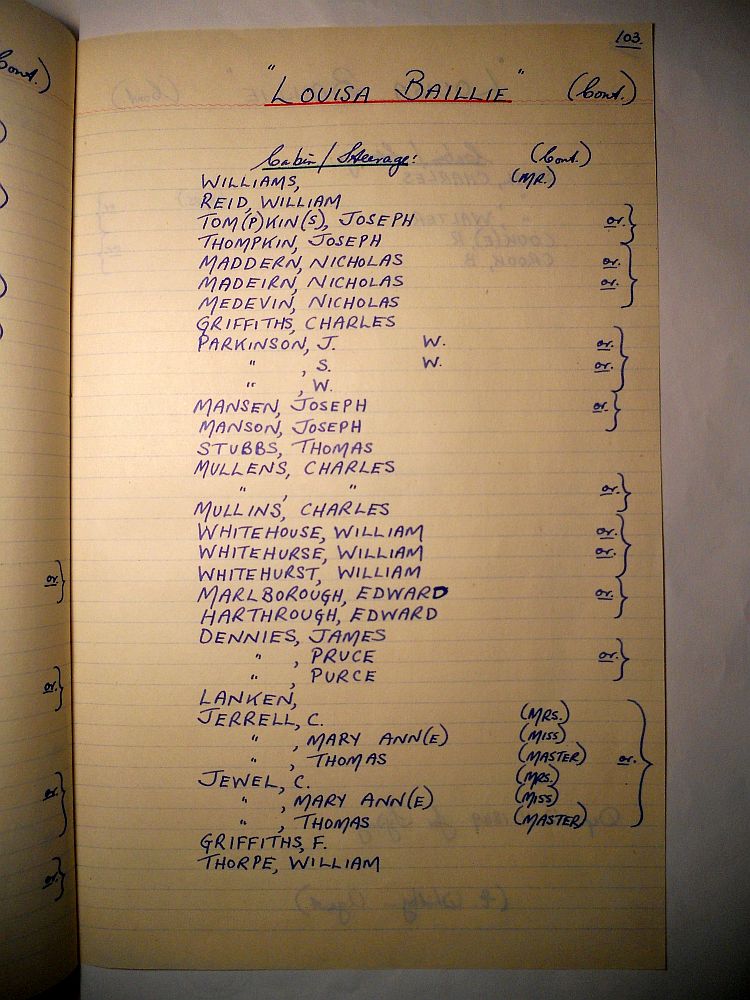 103.
"LOUISA BAILLIE" (Cont.)
Cabin/Steerage: (Cont.)
WILLIAMS, (MR.)
REID, WILLIAM
TOM(P)KIN(S), JOSEPH or.
THOMPKIN, JOSEPH
MADDERN, NICHOLAS or.
MADEIRN, NICHOLAS or.
MEDEVIN, NICHOLAS
GRIFFITHS, CHARLES
PARKINSON, J. W. or.
" , S. W. or.
" , W.
MANSEN, JOSEPH or.
MANSON, JOSEPH
STUBBS, THOMAS
MULLENS, CHARLES
" , " or.
MULLINS, CHARLES
WHITEHOUSE, WILLIAM or.
WHITEHURSE, WILLIAM or.
WHITEHURST, WILLIAM
MARLBOROUGH, EDWARD or.
HARTHROUGH, EDWARD
DENNIES, JAMES
" , PRUCE or.
" , PURCE
LANKEN,
JERRELL, C. (MRS.)
" , MARY ANN(E) (MISS)
" , THOMAS (MASTER) or.
JEWEL, C. (MRS.)
" , MARY ANN(E) (MISS)
" , THOMAS (MASTER)
GRIFFITHS, F.
THORPE, WILLIAM
Cont.)
or.
or.
or.
or.